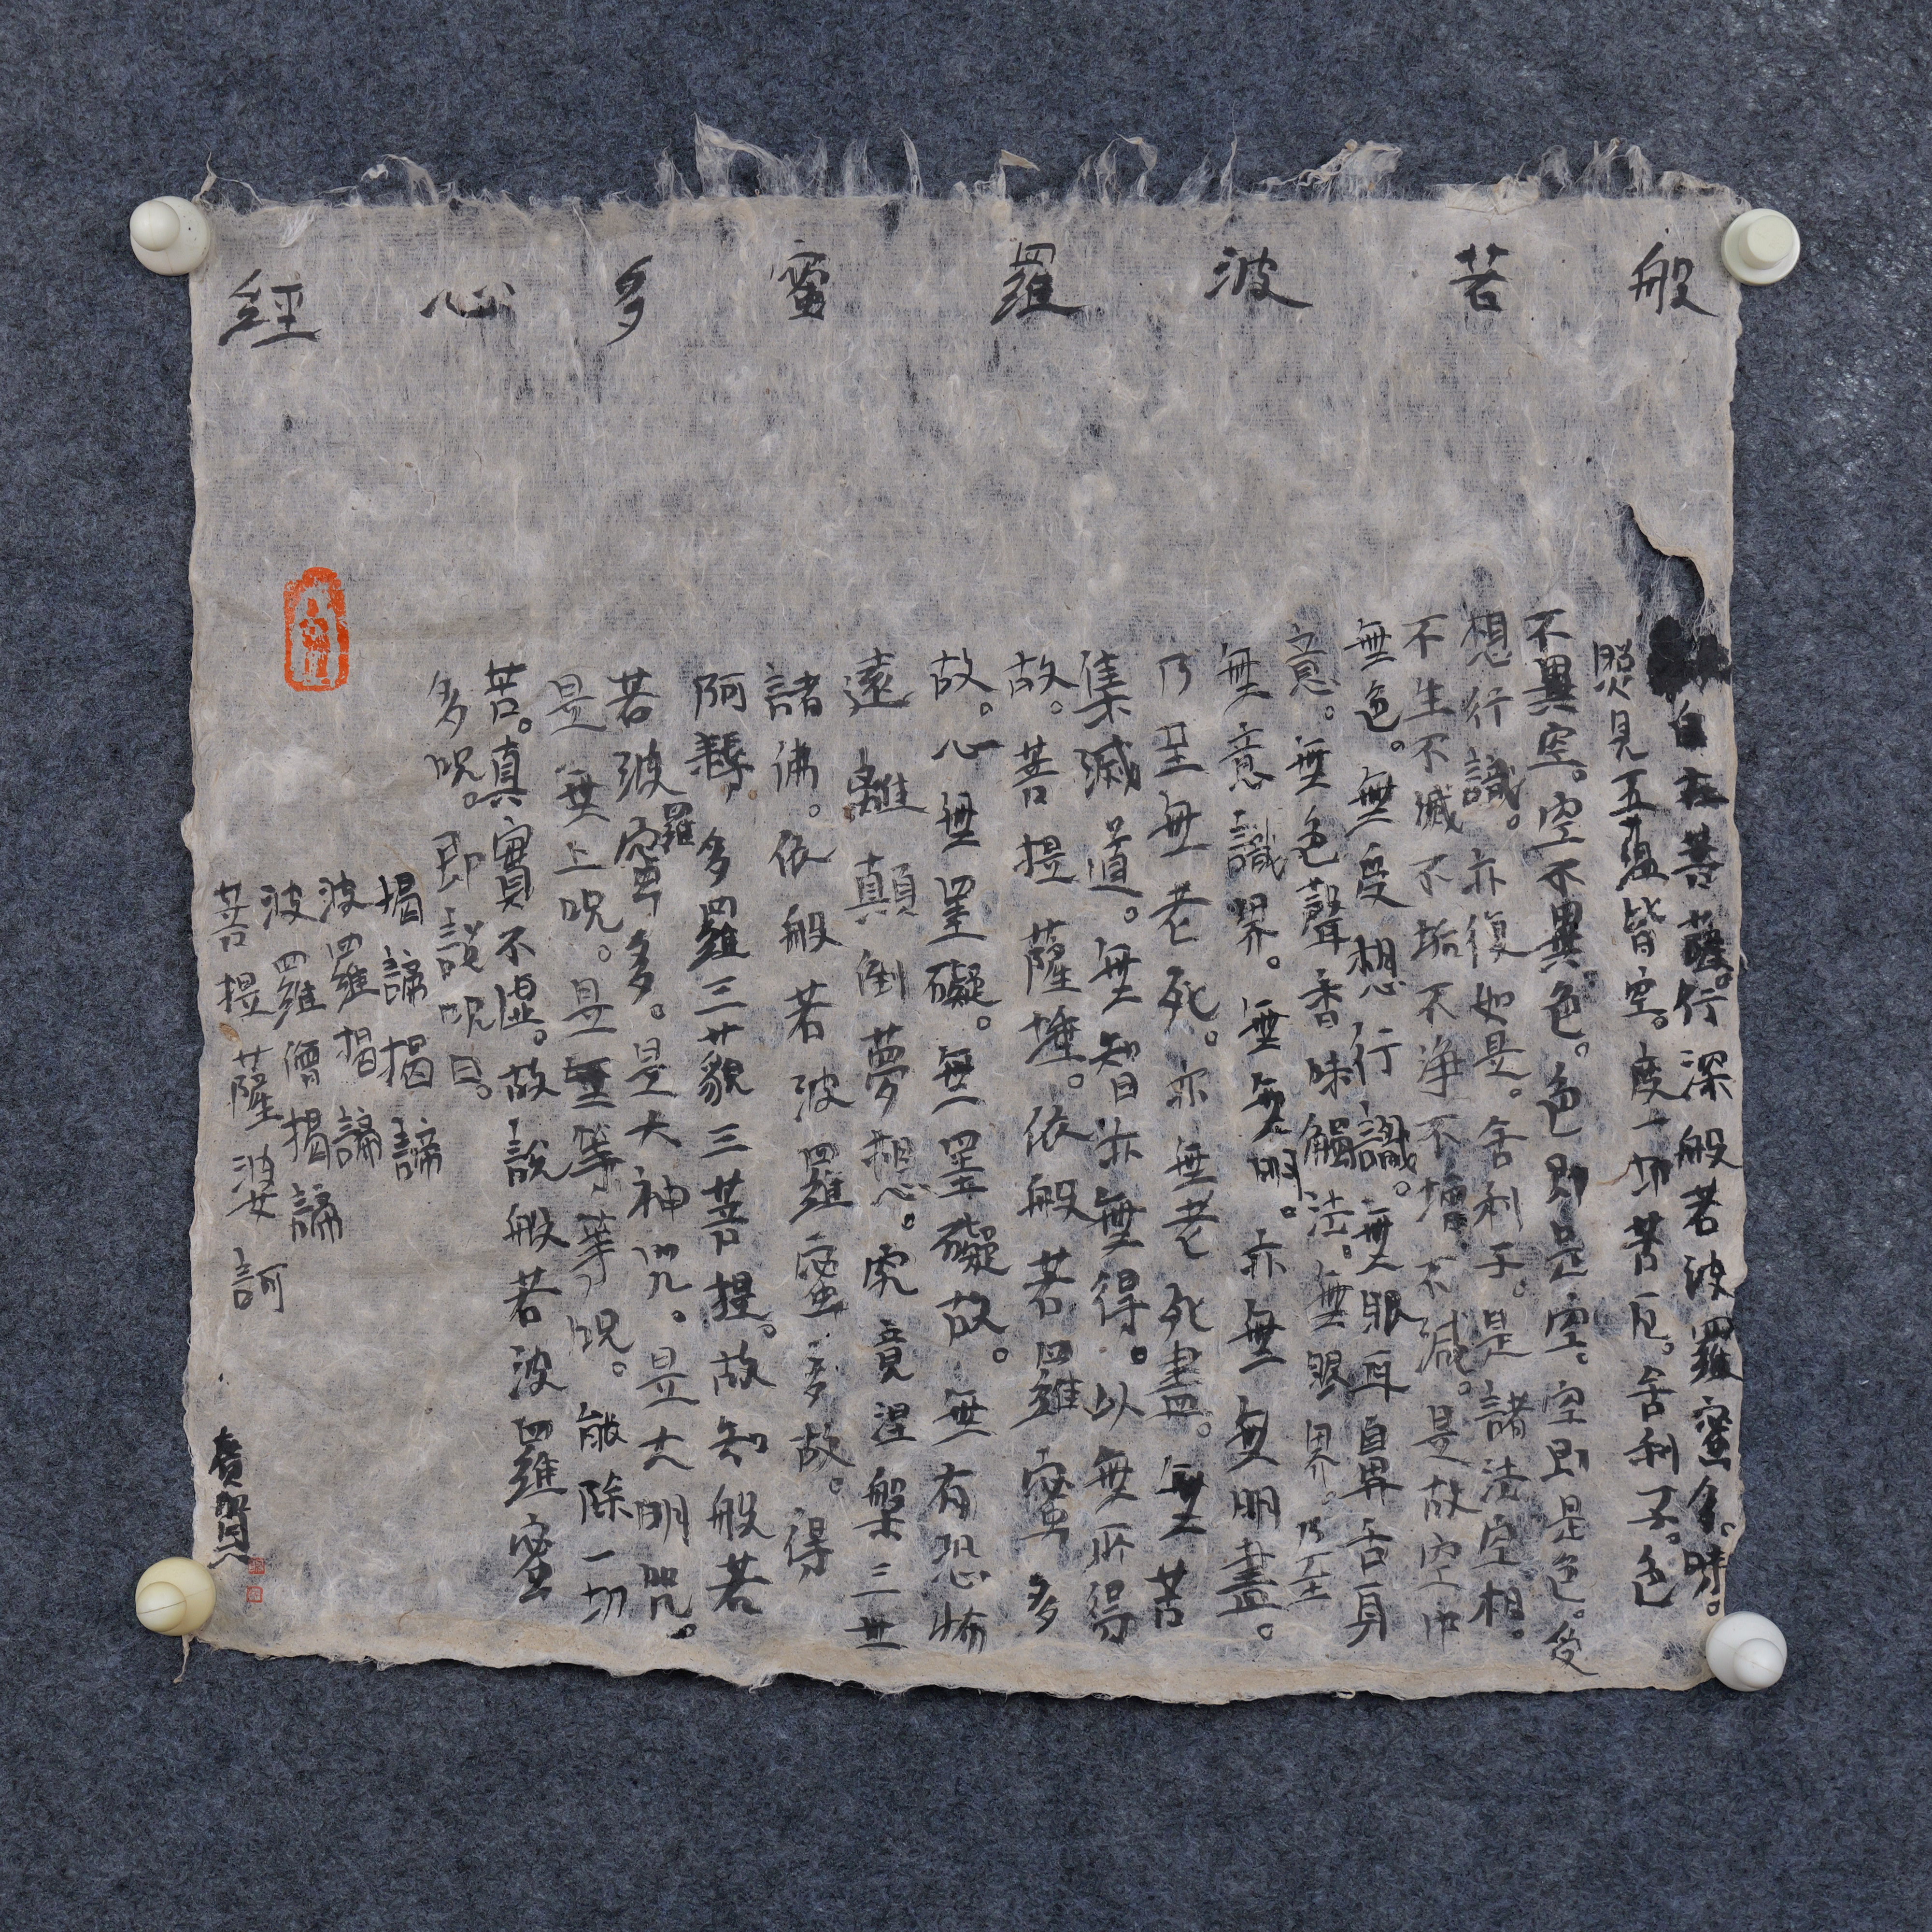 般若波羅蜜多心經
自在菩薩。行深般若波羅蜜多。時。
照見五蘊皆空。度一切苦厄。舍利子。色
不異空。空不異色。色即是空。空即是色。受
想行識。亦復如是。舍利子。是諸法空相。
不生不滅不垢不淨不增不減。是故空中
無色。無受想行識。無眼耳鼻舌身
意。無色聲香味觸法。無眼界。乃至
無意識界。無無明。亦無無明盡。
乃至無老死。亦無老死盡。無苦
集滅道。無智亦無得。以無所得
故。菩提薩埵。依般若羅蜜多
故。心無罣礙。無罣礙故。無有恐怖
遠離顛倒夢想。究竟涅槃三世
諸佛。依般若波羅蜜多故。得
阿耨多羅三藐三菩提。故知般若
若波羅蜜多。是大神咒。是大明咒。
是無上呪。是無等等呪。能除一切
苦。真實不虛。故說般若波羅蜜
多呪。即說呪曰。
揭諦揭諦
波羅揭諦
波羅僧揭諦
菩提薩婆訶
廣賢